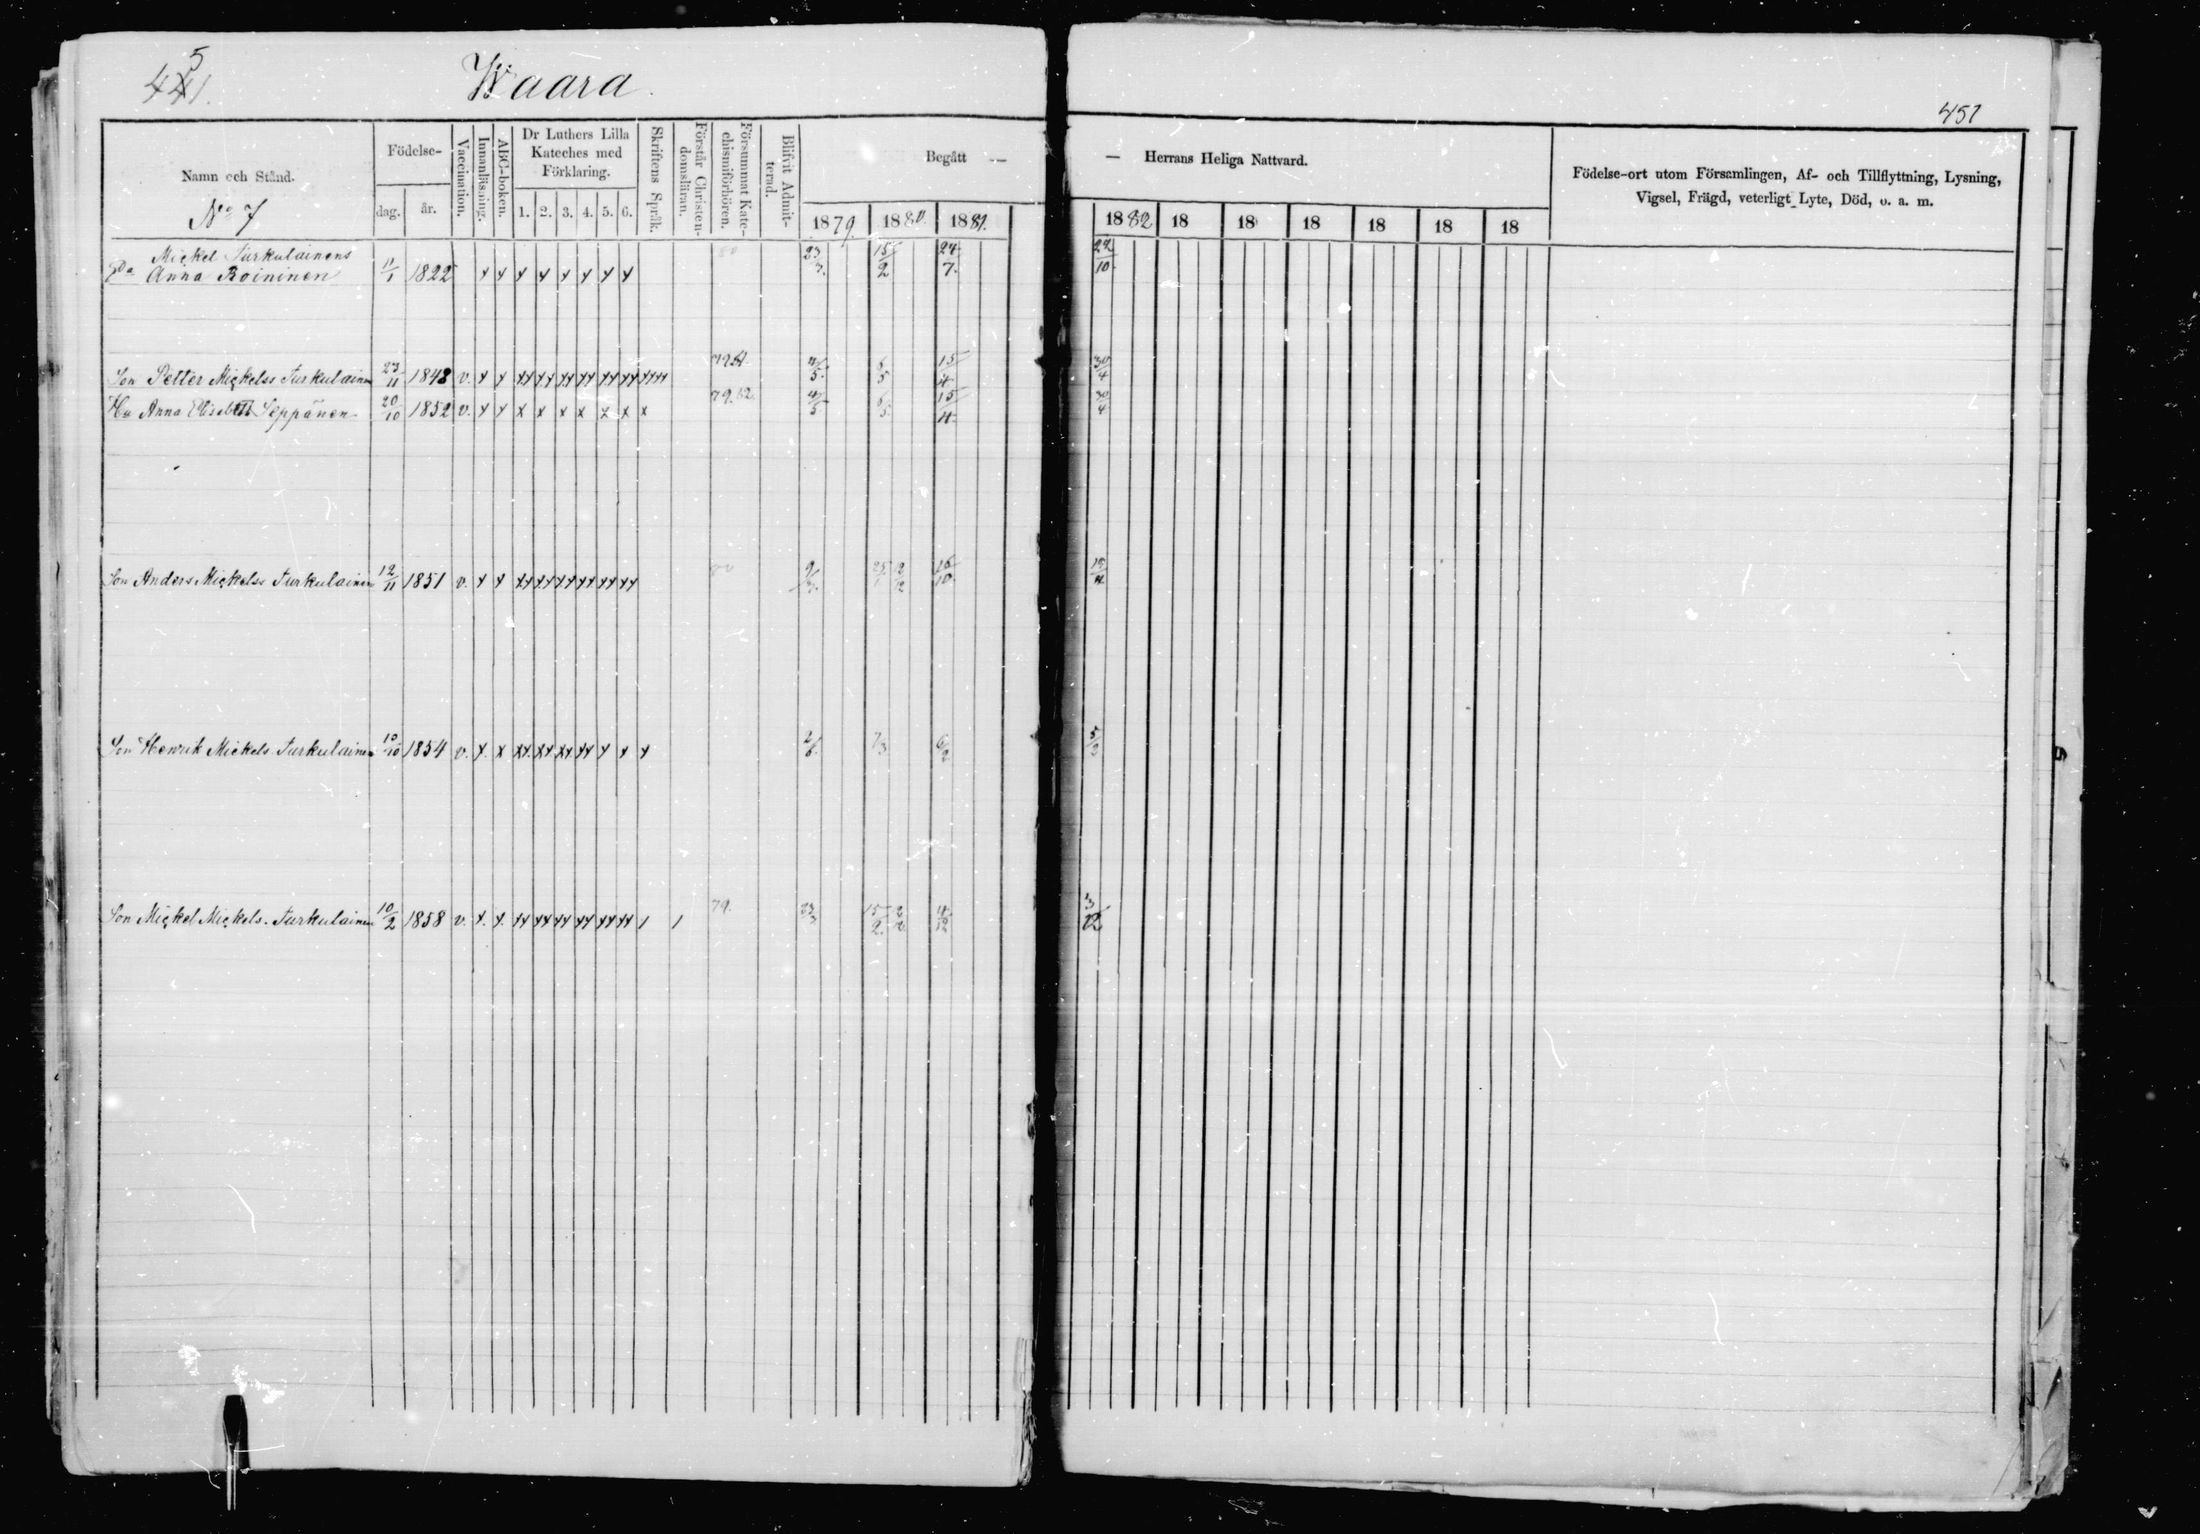 5
441.
Waara
451
Namn och Stånd.
No 7
Födelse-
dag.
år.
Vaccination.
Innanläsning.
ABC-boken.
Dr Luthers Lilla
Kateches med
Förklaring.
1. 2. 3. 4. 5. 6.
Skriftens Språk.
Förstår Christen-
domsläran.
Försummat Kate-
chismiförhören.
Blifvit Admit-
terad.
Begått —
— Herrans Heliga Nattvard.
1879. 1880. 1881.
1882 18 18 18 18 18 18
Födelse-ort utom Församlingen, Af- och Tillflyttning, Lysning,
Vigsel, Frägd, veterligt Lyte, Död, o. a. m.
Mickel Turkulainens
Anna Roininen 11/1 1822 x x x x x x x x 80 23/7. 15/2 24/7. 22/10.
Son Petter Mickelss Turkulainen 23/11 1848 v. x x xx xx xx xx xx xx xxxx 4/5. 6/5 15/4. 30/4
Hu Anna Elisabeth Seppänen 20/10 1852 v. x x x x x x x x x 79.82. 4/5 6/5. 15/4. 30/4
Son Anders Mickelss Turkulainen 12/11 1851 v. x x xx xx xx xx xx xx 9/7. 25/1 12/12 16/10.
Son Henrik Mickels. Turkulainen 10/10 1854 v. x. x xx. xx xx xx x x x 2/6. 7/3 6/2 5/2
Son Mickel Mickels. Turkulainen 10/2 1858 v. x. x. xx xx xx xx xx xx / / 79. 23/7 15/2. 2/12 4/12 3/12